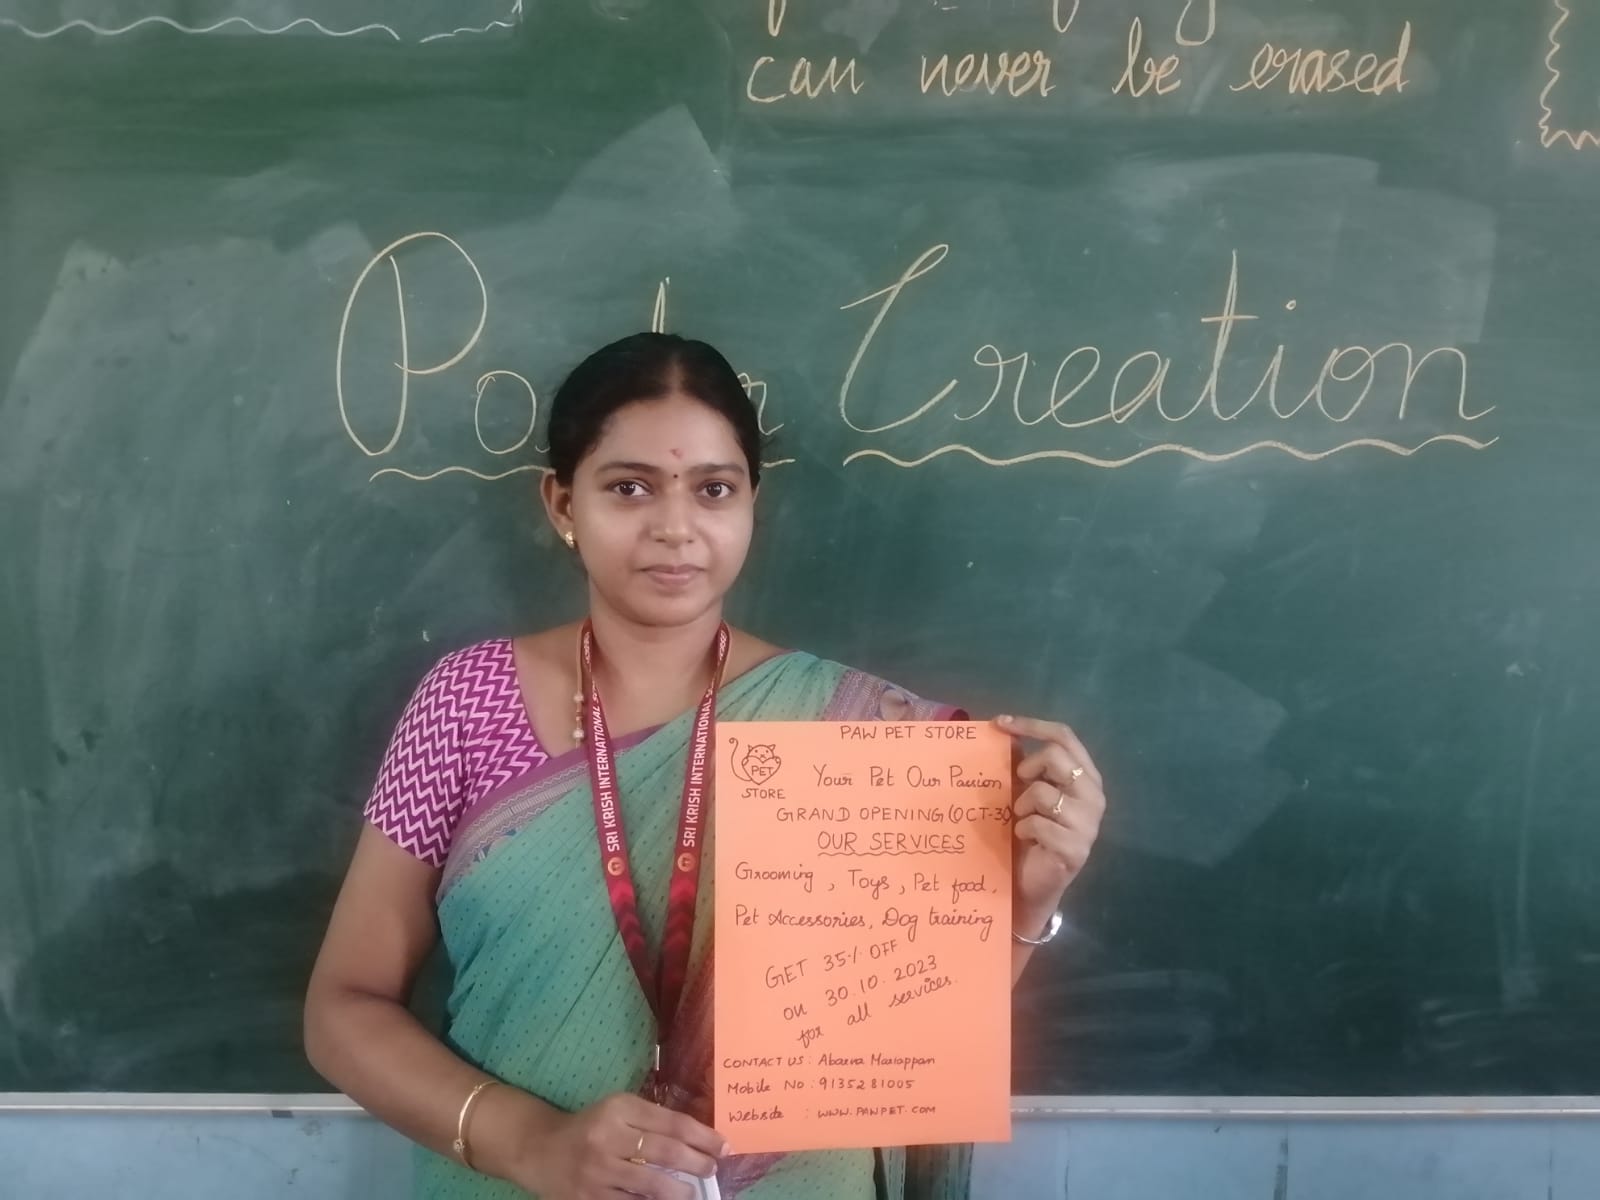 can never be erased
Creation
SRI KRISH INTERNATIONAL
SRI KRISH INTERNATIONAL
PAW PET STORE
PET
STORE
Your Pet Our Passion
GRAND OPENING (OCT-30)
OUR SERVICES
Grooming, Toys, Pet food,
Pet Accessories, Dog training
GET 35% OFF
on 30.10.2023
for all services.
CONTACT US : Abarna Mariappan
Mobile No : 9135281005
Website : WWW.PAWPET.COM